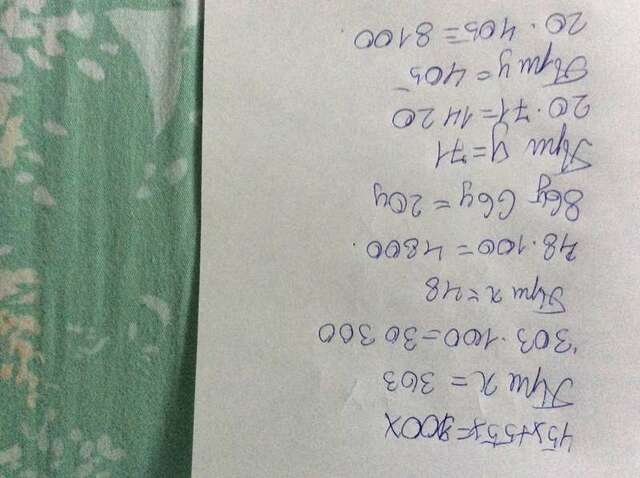 45x+55x=100x
При x = 303
303·100=30300
При x=48
48·100=4800.
86y-66y=20y
При y=71
20·71=1420
При y=405
20·405=8100.